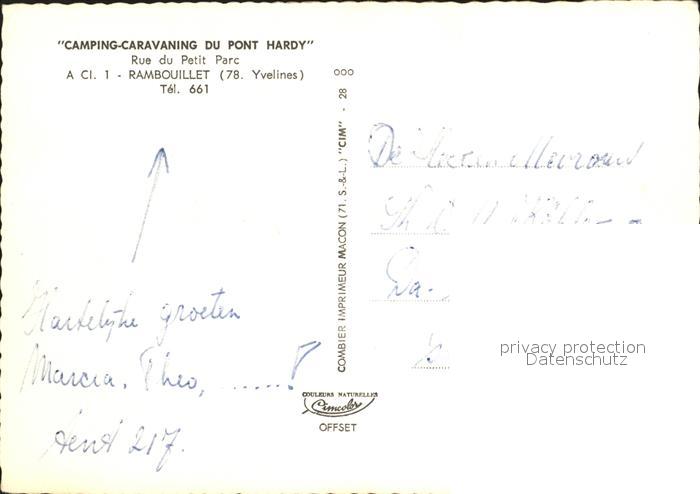 "CAMPING-CARAVANING DU PONT HARDY"
Rue du Petit Parc
A Cl. 1 - RAMBOUILLET (78. Yvelines)
Tél. 661
Hartelijke groeten
Marcia, Theo, ......!
217.
COMBIER IMPRIMEUR MACON (71. S.-&-L.) "CIM" - 28 000
COULEURS NATURELLES
Cimcolor
OFFSET
De
privacy protection
Datenschutz